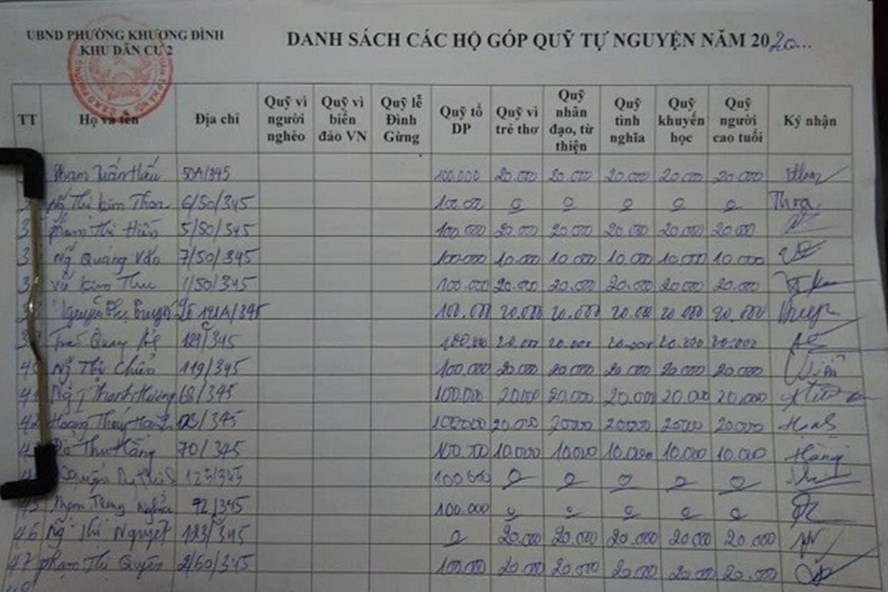 UBND PHƯỜNG KHƯƠNG ĐÌNH
KHU DÂN CƯ 2
DANH SÁCH CÁC HỘ GÓP QUỸ TỰ NGUYỆN NĂM 2020...
TT Họ và tên Địa chỉ Quỹ vì người nghèo Quỹ vì biển đảo VN Quỹ lễ Đình Gừng Quỹ tổ DP Quỹ vì trẻ thơ Quỹ nhân đạo, từ thiện Quỹ tình nghĩa Quỹ khuyến học Quỹ người cao tuổi Ký nhận
50A/345 100.000 20.000 20.000 20.000 20.000 20.000
6/50/345 100.000 0 0 0 0 0 Thoa
Phạm Thị Hiền 5/50/345 100.000 20.000 20.000 20.000 20.000 20.000
Ng Quảng Văn 7/50/345 100.000 10.000 10.000 10.000 10.000 10.000
Vũ Kim Thu 1/50/345 100.000 20.000 20.000 20.000 20.000 20.000
Nguyễn Thị 100.000 20.000 20.000 20.000 20.000 20.000
Trần Quang 100.000 20.000 20.000 20.000 20.000 20.000
40 Ng Thị Chiến 119/345 100.000 20.000 20.000 20.000 20.000 20.000
41 Ng T Thanh Hương 68/345 100.000 20.000 20.000 20.000 20.000 20.000
42 Hoàng Thúy 100.000 20.000 20.000 20.000 20.000 20.000
Đỗ Thu Hằng 70/345 100.000 10.000 10.000 10.000 10.000 10.000 Hằng
125/345 100.000 0 0 0 0 0
45 Phạm Trọng Nghĩa 72/345 100.000 0 0 0 0 0
46 Ng Thị Nguyệt 123/345 0 20.000 20.000 20.000 20.000 20.000
47 Phạm Thị Quyên 2/50/345 100.000 20.000 20.000 20.000 20.000 20.000